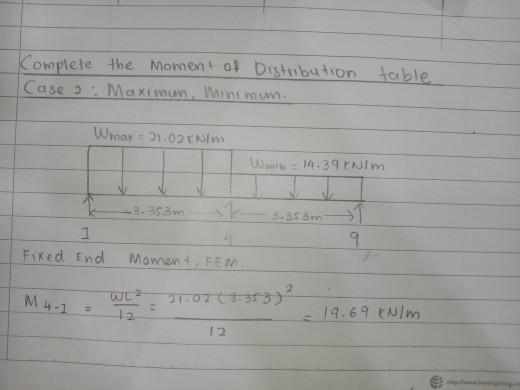 Complete the Moment of Distribution table
Case 2 : Maximum, Minimum.
Wmax = 21.02 kN/m
Wmin = 14.39 kN/m
3.353m
3.353m
1
4
9
Fixed End Moment, FEM.
M4-1 = WL²/12 = 21.02 (3.353)²/12 = 19.69 kN/m